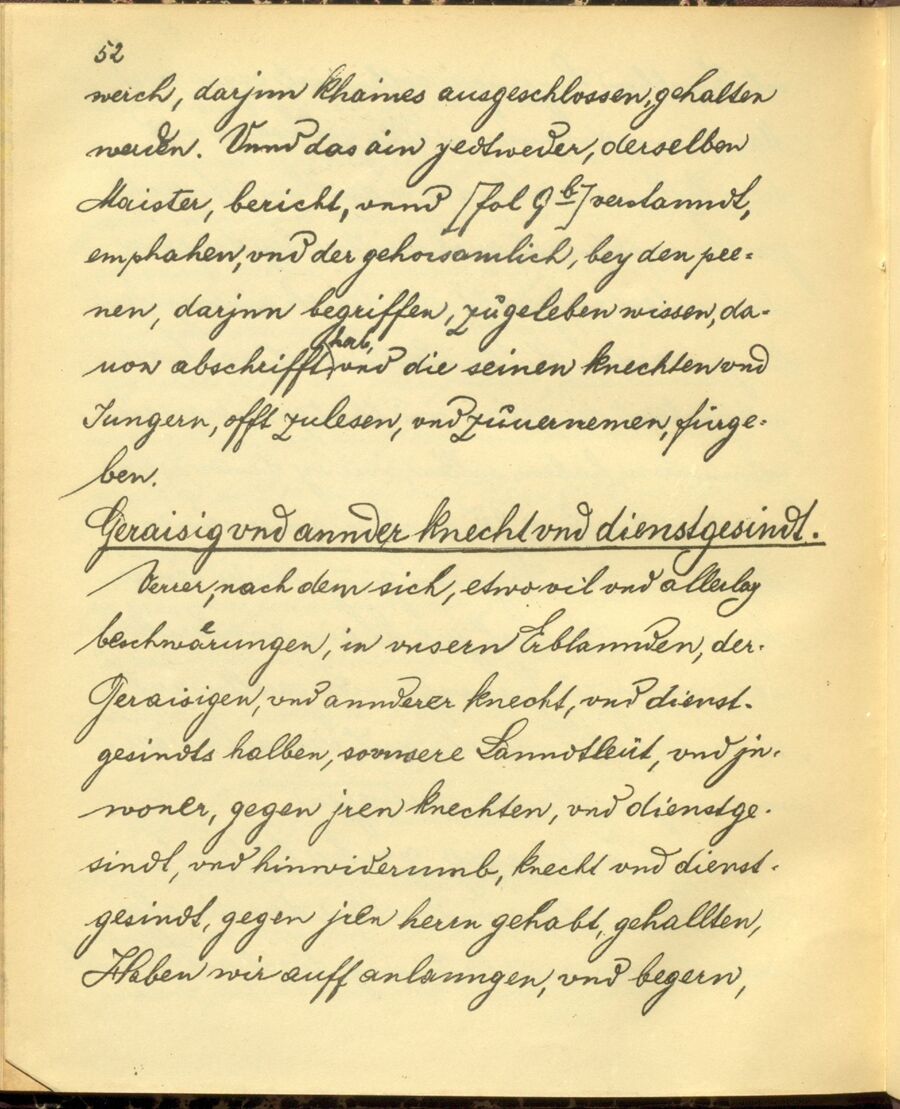 52
werch, darjnn khaines ausgeschlossen, gehalten
werden. Vnnd das ain yedtweder, derselben
Maister, bericht, vnnd [fol 9b] verstanndt,
emphahen, vnd der gehorsamlich, bey den pee=
nen, darjnn begriffen, zůgeleben wissen, da-
uon abschrifft hab, vnd die seinen knechten vnd
Jungern, offt zulesen, vnd zůuernemen, fürge=
ben.
Geraisig vnd annder knecht vnd dienstgesindt.
Verrer, nach dem sich, etwo vil vnd allerlay
beschwärungen, in vnsern Erblannden, der-
Geraisigen, vnd annderer knecht, vnd dienst-
gesindts halben, so vnnsere Lanndtleüt, vnd jn-
woner, gegen jren knechten, vnd dienstge-
sindt, vnd hinwiderumb, knecht vnd dienst-
gesindt, gegen jren herrn gehabt, gehallten,
Haben wir auff anlanngen, vnd begern,